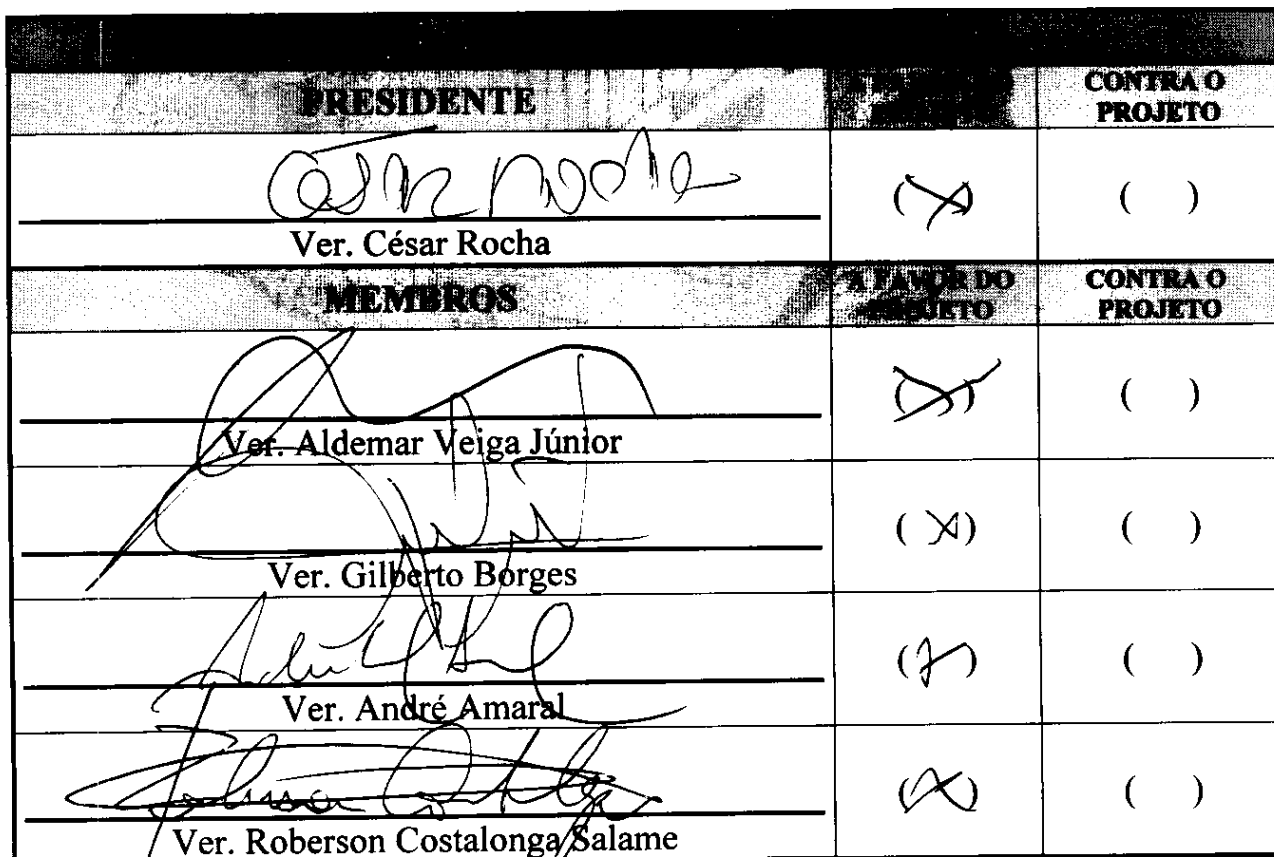 PRESIDENTE CONTRA O
PROJETO
César Rocha (X) ( )
Ver. César Rocha
MEMBROS A FAVOR DO PROJETO CONTRA O
PROJETO
(X) ( )
Ver. Aldemar Veiga Júnior
(X) ( )
Ver. Gilberto Borges
(X) ( )
Ver. André Amaral
(X) ( )
Ver. Roberson Costalonga Salame